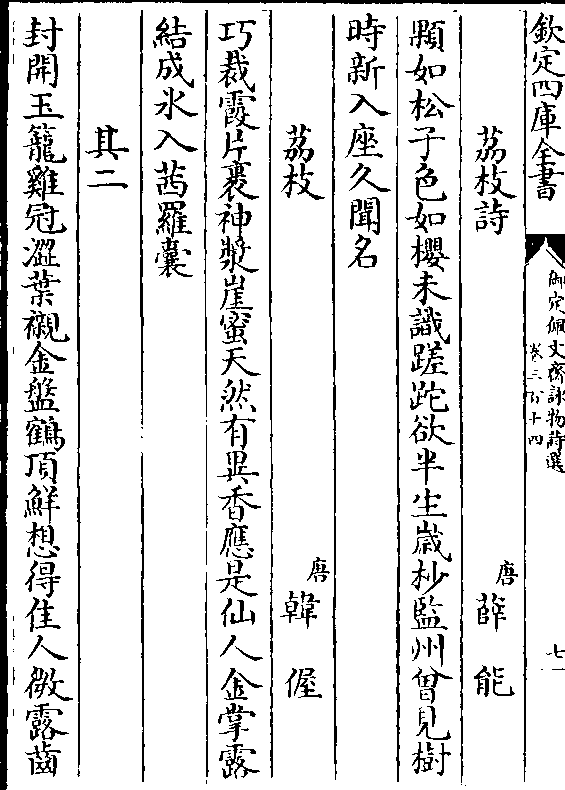 欽定四庫全書
御定佩文齋詠物詩選
卷三百十四
七
荔枝詩 唐 薛能
顆如松子色如櫻未識蹉跎欲半生歲杪監州曾見樹
時新入座久聞名
荔枝 唐 韓偓
巧裁霞片裹神漿崖蜜天然有異香應是仙人金掌露
結成氷入蒨羅囊
其二
封開玉籠雞冠澀葉襯金盤鶴頂鮮想得佳人微露齒